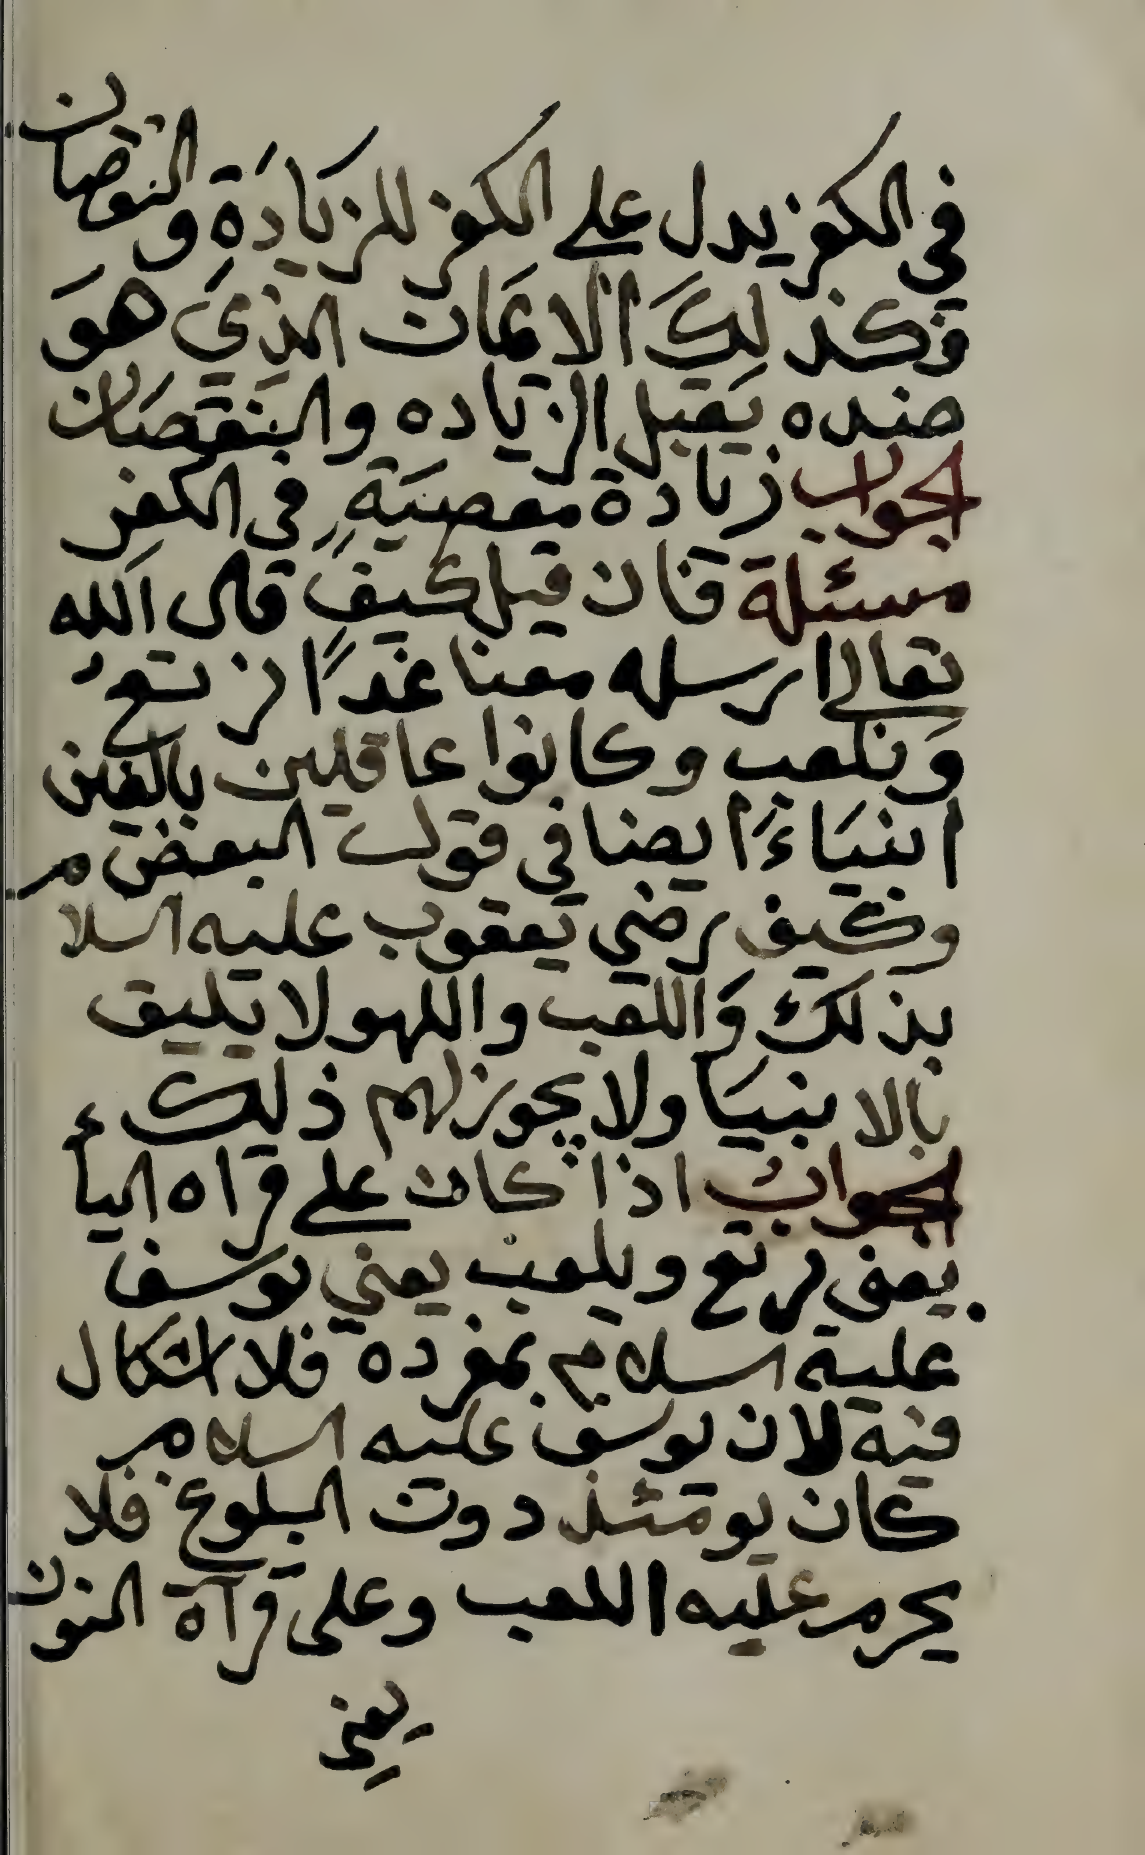 في الكفر يدل على الكفر للزيادة والنوقصان
وكذلك الايمان الذي هو
ضده يقبل الزياده والنقصان
الجواب زيادة معصية في الكفر
مسئلة فان قيل كيف قال الله
تعالى ارسله معنا غدًا نرتع
ونلعب وكانوا عاقلين بالغين
انبياءً ايضا في قول البعض م
وكيف رضي يعقوب عليه السلا
بذلك واللعب واللهو لا يليق
بالانبيا ولا يجوز لهم ذلك
الجواب اذا كان على قراه اليأ
يعني يرتع ويلعب يعني يوسف
علية السلام بمفرده فلا اشكال
فية لان يوسف عليه السلام
كان يومئذ دون البلوغ فلا
يحرم عليه اللعب وعلى قرآة النون
يعني